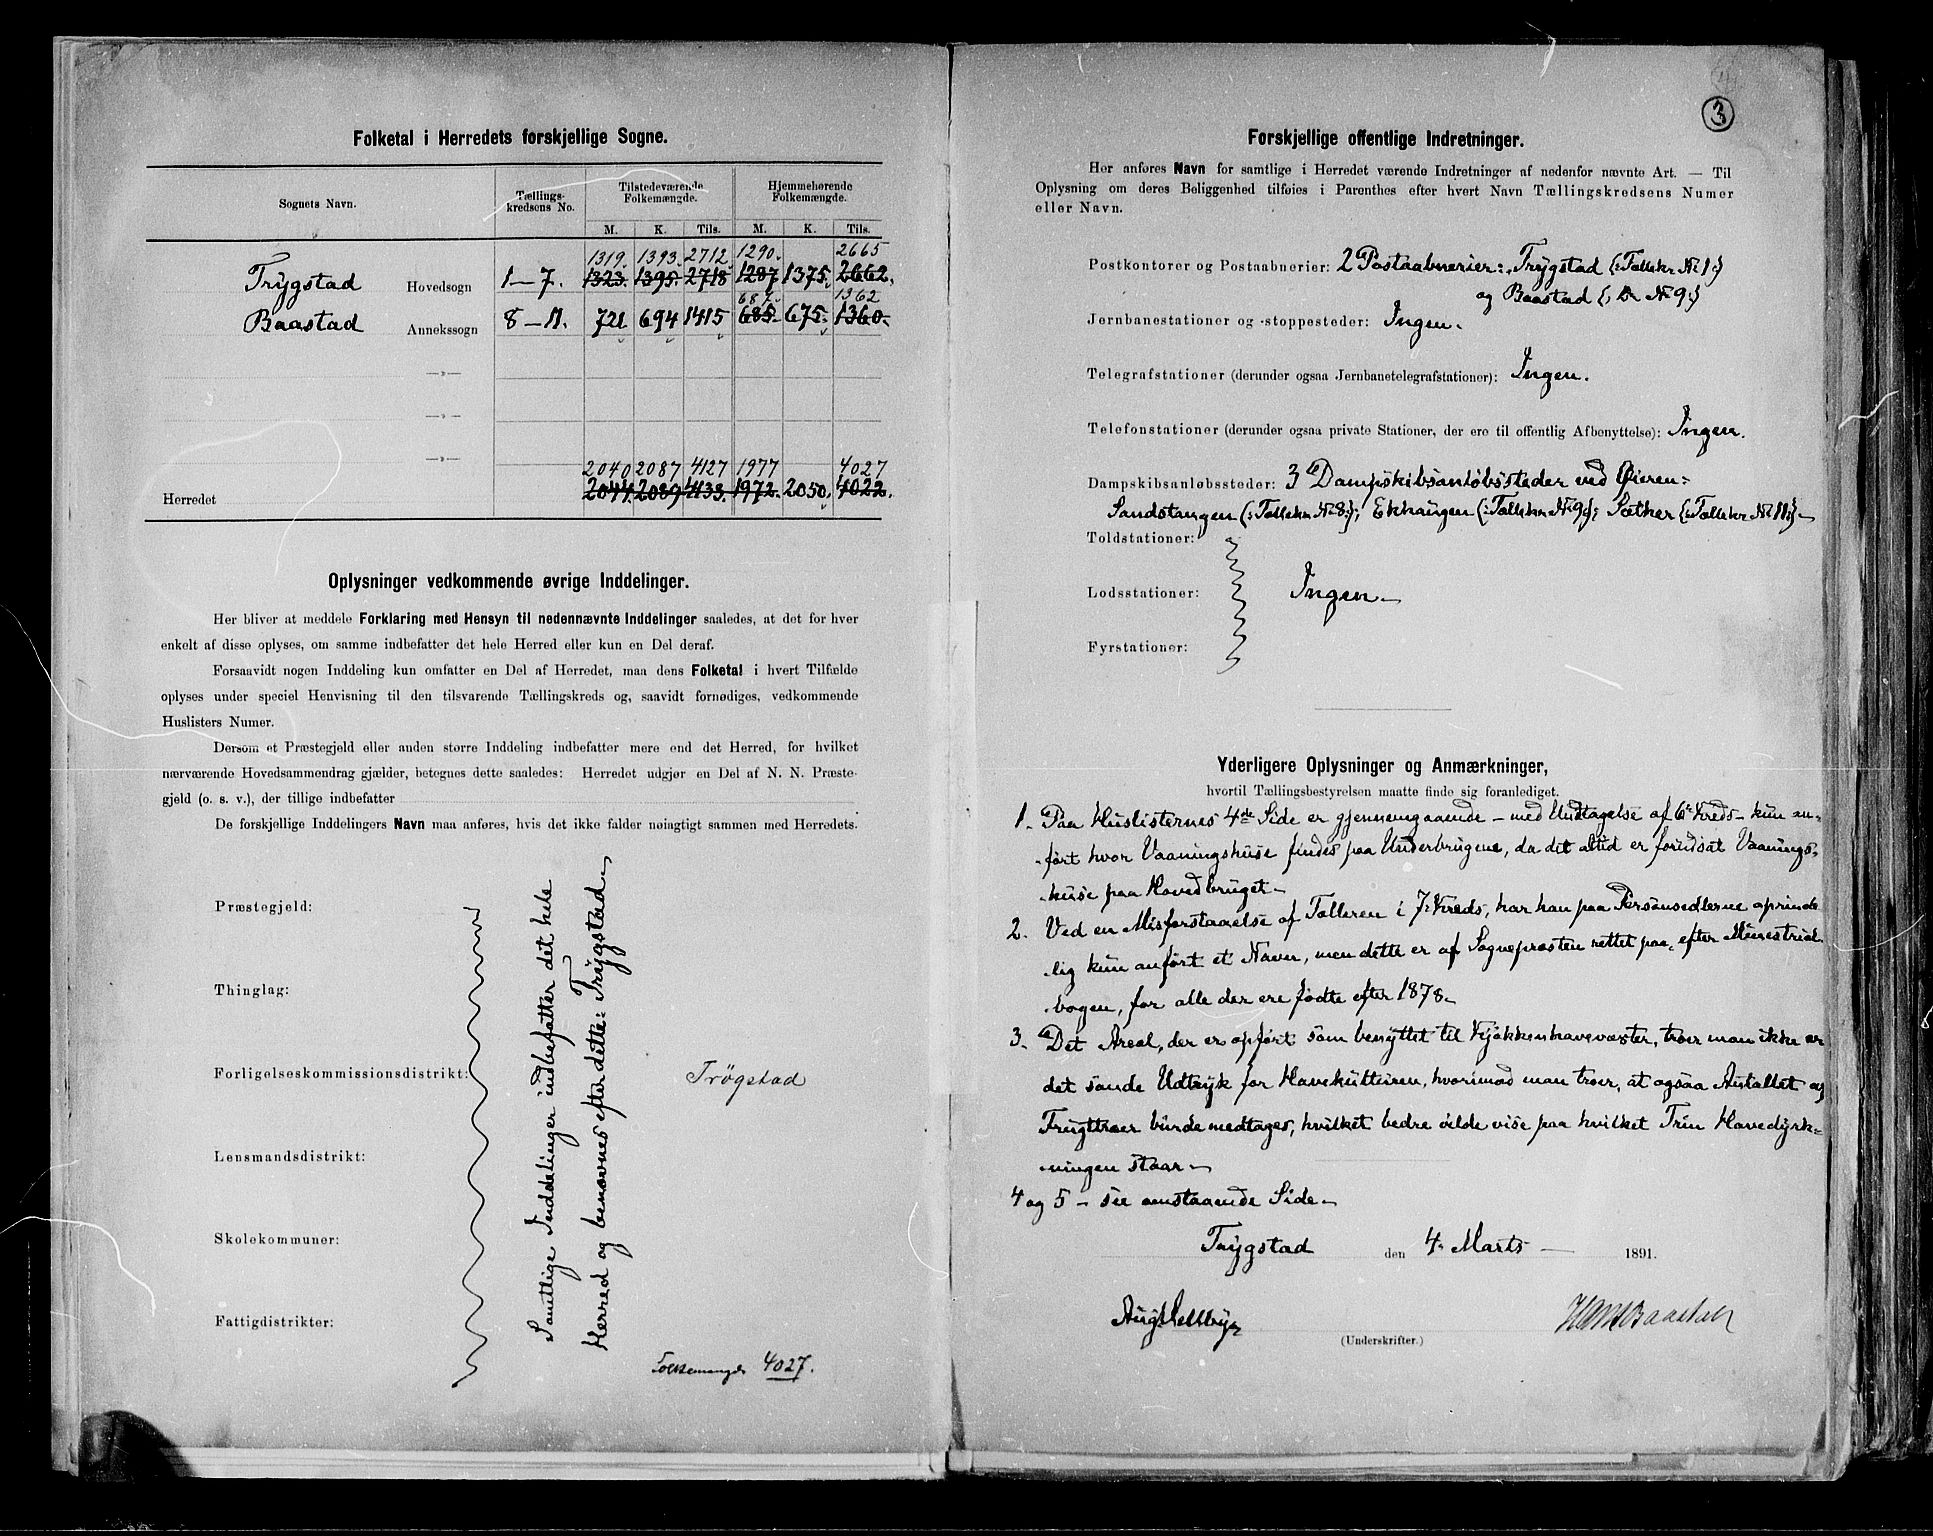 Folketal i Herredets forskjellige Sogne.
Sognets Navn. Tællings-kredsens No. Tilstedeværende Folkemængde. Hjemmehørende Folkemængde.
M. K. Tils. M. K. Tils.
1319. 1393. 2712. 1290. 2665
Trygstad Hovedsogn 1-7. 1323. 1395. 2718 1287 1375. 2662.
687. 1362
Baastad Annekssogn 8-11. 721 694 1415 685. 675. 1360.
—»—
—»—
—»—
2040 2087 4127 1977 4027
Herredet 2044. 2089 4133. 1972. 2050. 4022.
Oplysninger vedkommende øvrige Inddelinger.
Her bliver at meddele Forklaring med Hensyn til nedennævnte Inddelinger saaledes, at det for hver
enkelt af disse oplyses, om samme indbefatter det hele Herred eller kun en Del deraf.
Forsaavidt nogen Inddeling kun omfatter en Del af Herredet, maa dens Folketal i hvert Tilfælde
oplyses under speciel Henvisning til den tilsvarende Tællingskreds og, saavidt fornødiges, vedkommende
Huslisters Numer.
Dersom et Præstegjeld eller anden større Inddeling indbefatter mere end det Herred, for hvilket
nærværende Hovedsammendrag gjælder, betegnes dette saaledes: Herredet udgjør en Del af N. N. Præste-
gjeld (o. s. v.), der tillige indbefatter
De forskjellige Inddelingers Navn maa anføres, hvis det ikke falder nøiagtigt sammen med Herredets.
Præstegjeld:
Thinglag:
Forligelseskommissionsdistrikt:
Lensmandsdistrikt:
Skolekommuner:
Fattigdistrikter:
Samtlige Inddelinger indbefatter det hele
Herred og benævnes efter dette: Trygstad.
Trøgstad
Folkemængde 4027.
3
Forskjellige offentlige Indretninger.
Her anføres Navn for samtlige i Herredet værende Indretninger af nedenfor nævnte Art. — Til
Oplysning om deres Beliggenhed tilføies i Parenthes efter hvert Navn Tællingskredsens Numer
eller Navn.
Postkontorer og Postaabnerier: 2 Postaabnerier: Trygstad (: Tællekr № 1 :)
og Baastad (: Do № 9 :)
Jernbanestationer og -stoppesteder: Ingen.
Telegrafstationer (derunder ogsaa Jernbanetelegrafstationer): Ingen.
Telefonstationer (derunder ogsaa private Stationer, der ere til offentlig Afbenyttelse): Ingen.
Dampskibsanløbssteder: 3 de Dampskibsanløbssteder ved Øieren:
Sandstangen (: Tællekr № 8 :); Ekhaugen (: Tællekr № 9 :); Sæther (: Tællekr № 11 :)
Toldstationer:
Lodsstationer: Ingen
Fyrstationer:
Yderligere Oplysninger og Anmærkninger,
hvortil Tællingsbestyrelsen maatte finde sig foranlediget.
1. Paa Huslisternes 4de Side er gjennemgaaende - med Undtagelse af 6te Kreds - kun an-
ført hvor Vaaningshuse findes paa Underbrugene, da det altid er forudsat Vaanings-
huse paa Hovedbruget
2. Ved en Misforstaaelse af Tælleren i 7de Kreds, har han paa Personsedlerne oprinde
lig kun anført et Navn, men dette er af Sognepræsten rettet paa, efter Ministrial
bogen, for alle der ere fødte efter 1878
3. Det Areal, der er opført som benyttet til Kjøkkenhavevæxter, troer man ikke er
det sande Udtryk for Havekulturen, hvorimod man troer, at ogsaa Antallet af
Frugttræer burde medtages, hvilket bedre vilde vise paa hvilket Trin Havedyrk-
ningen staar
4 og 5 - see omstaaende Side
Trygstad den 4. Marts 1891.
(Underskrifter.)